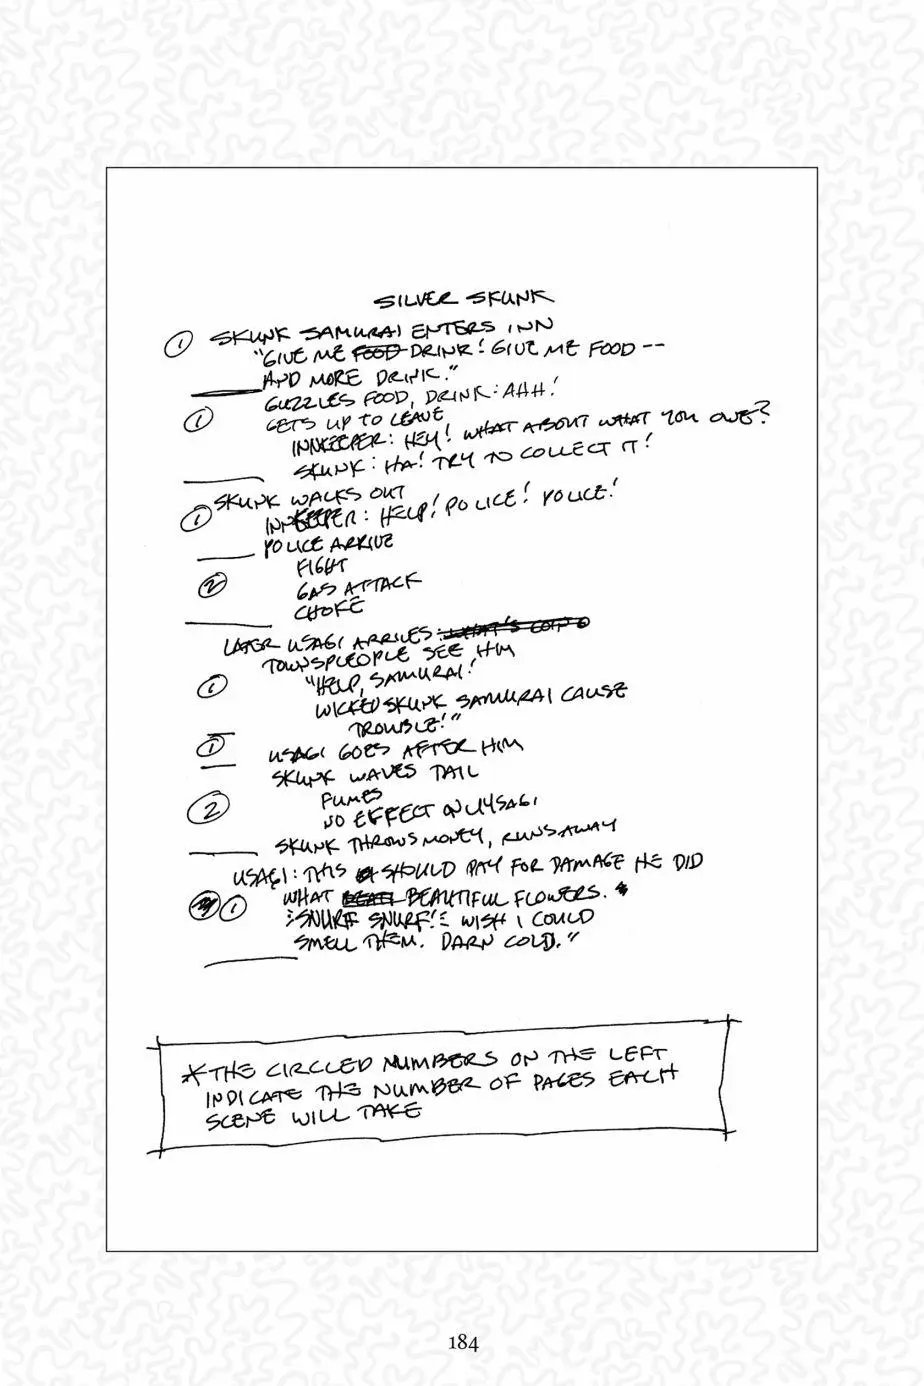 SILVER SKUNK
① SKUNK SAMURAI ENTERS INN
"GIVE ME FOOD DRINK! GIVE ME FOOD --
AND MORE DRINK."
GUZZLES FOOD, DRINK: AHH!
① GETS UP TO LEAVE
INNKEEPER: HEY! WHAT ABOUT WHAT YOU OWE?
SKUNK: HA! TRY TO COLLECT IT!
SKUNK WALKS OUT
① INNKEEPER: HELP! POLICE! POLICE!
POLICE ARRIVE
FIGHT
② GAS ATTACK
CHOKE
LATER USAGI ARRIVES: WHAT'S
TOWNSPLEOPLE SEE HIM
① "HELP, SAMURAI!
WICKED SKUNK SAMURAI CAUSE
TROUBLE!"
① USAGI GOES AFTER HIM
SKUNK WAVES TAIL
② FUMES
NO EFFECT ON USAGI
SKUNK THROWS MONEY, RUNS AWAY
USAGI: THIS SHOULD PAY FOR DAMAGE HE DID
① WHAT BEAUTIFUL FLOWERS.
SNURF SNURF! WISH I COULD
SMELL THEM. DARN COLD."
*THE CIRCLED NUMBERS ON THE LEFT
INDICATE THE NUMBER OF PAGES EACH
SCENE WILL TAKE
184